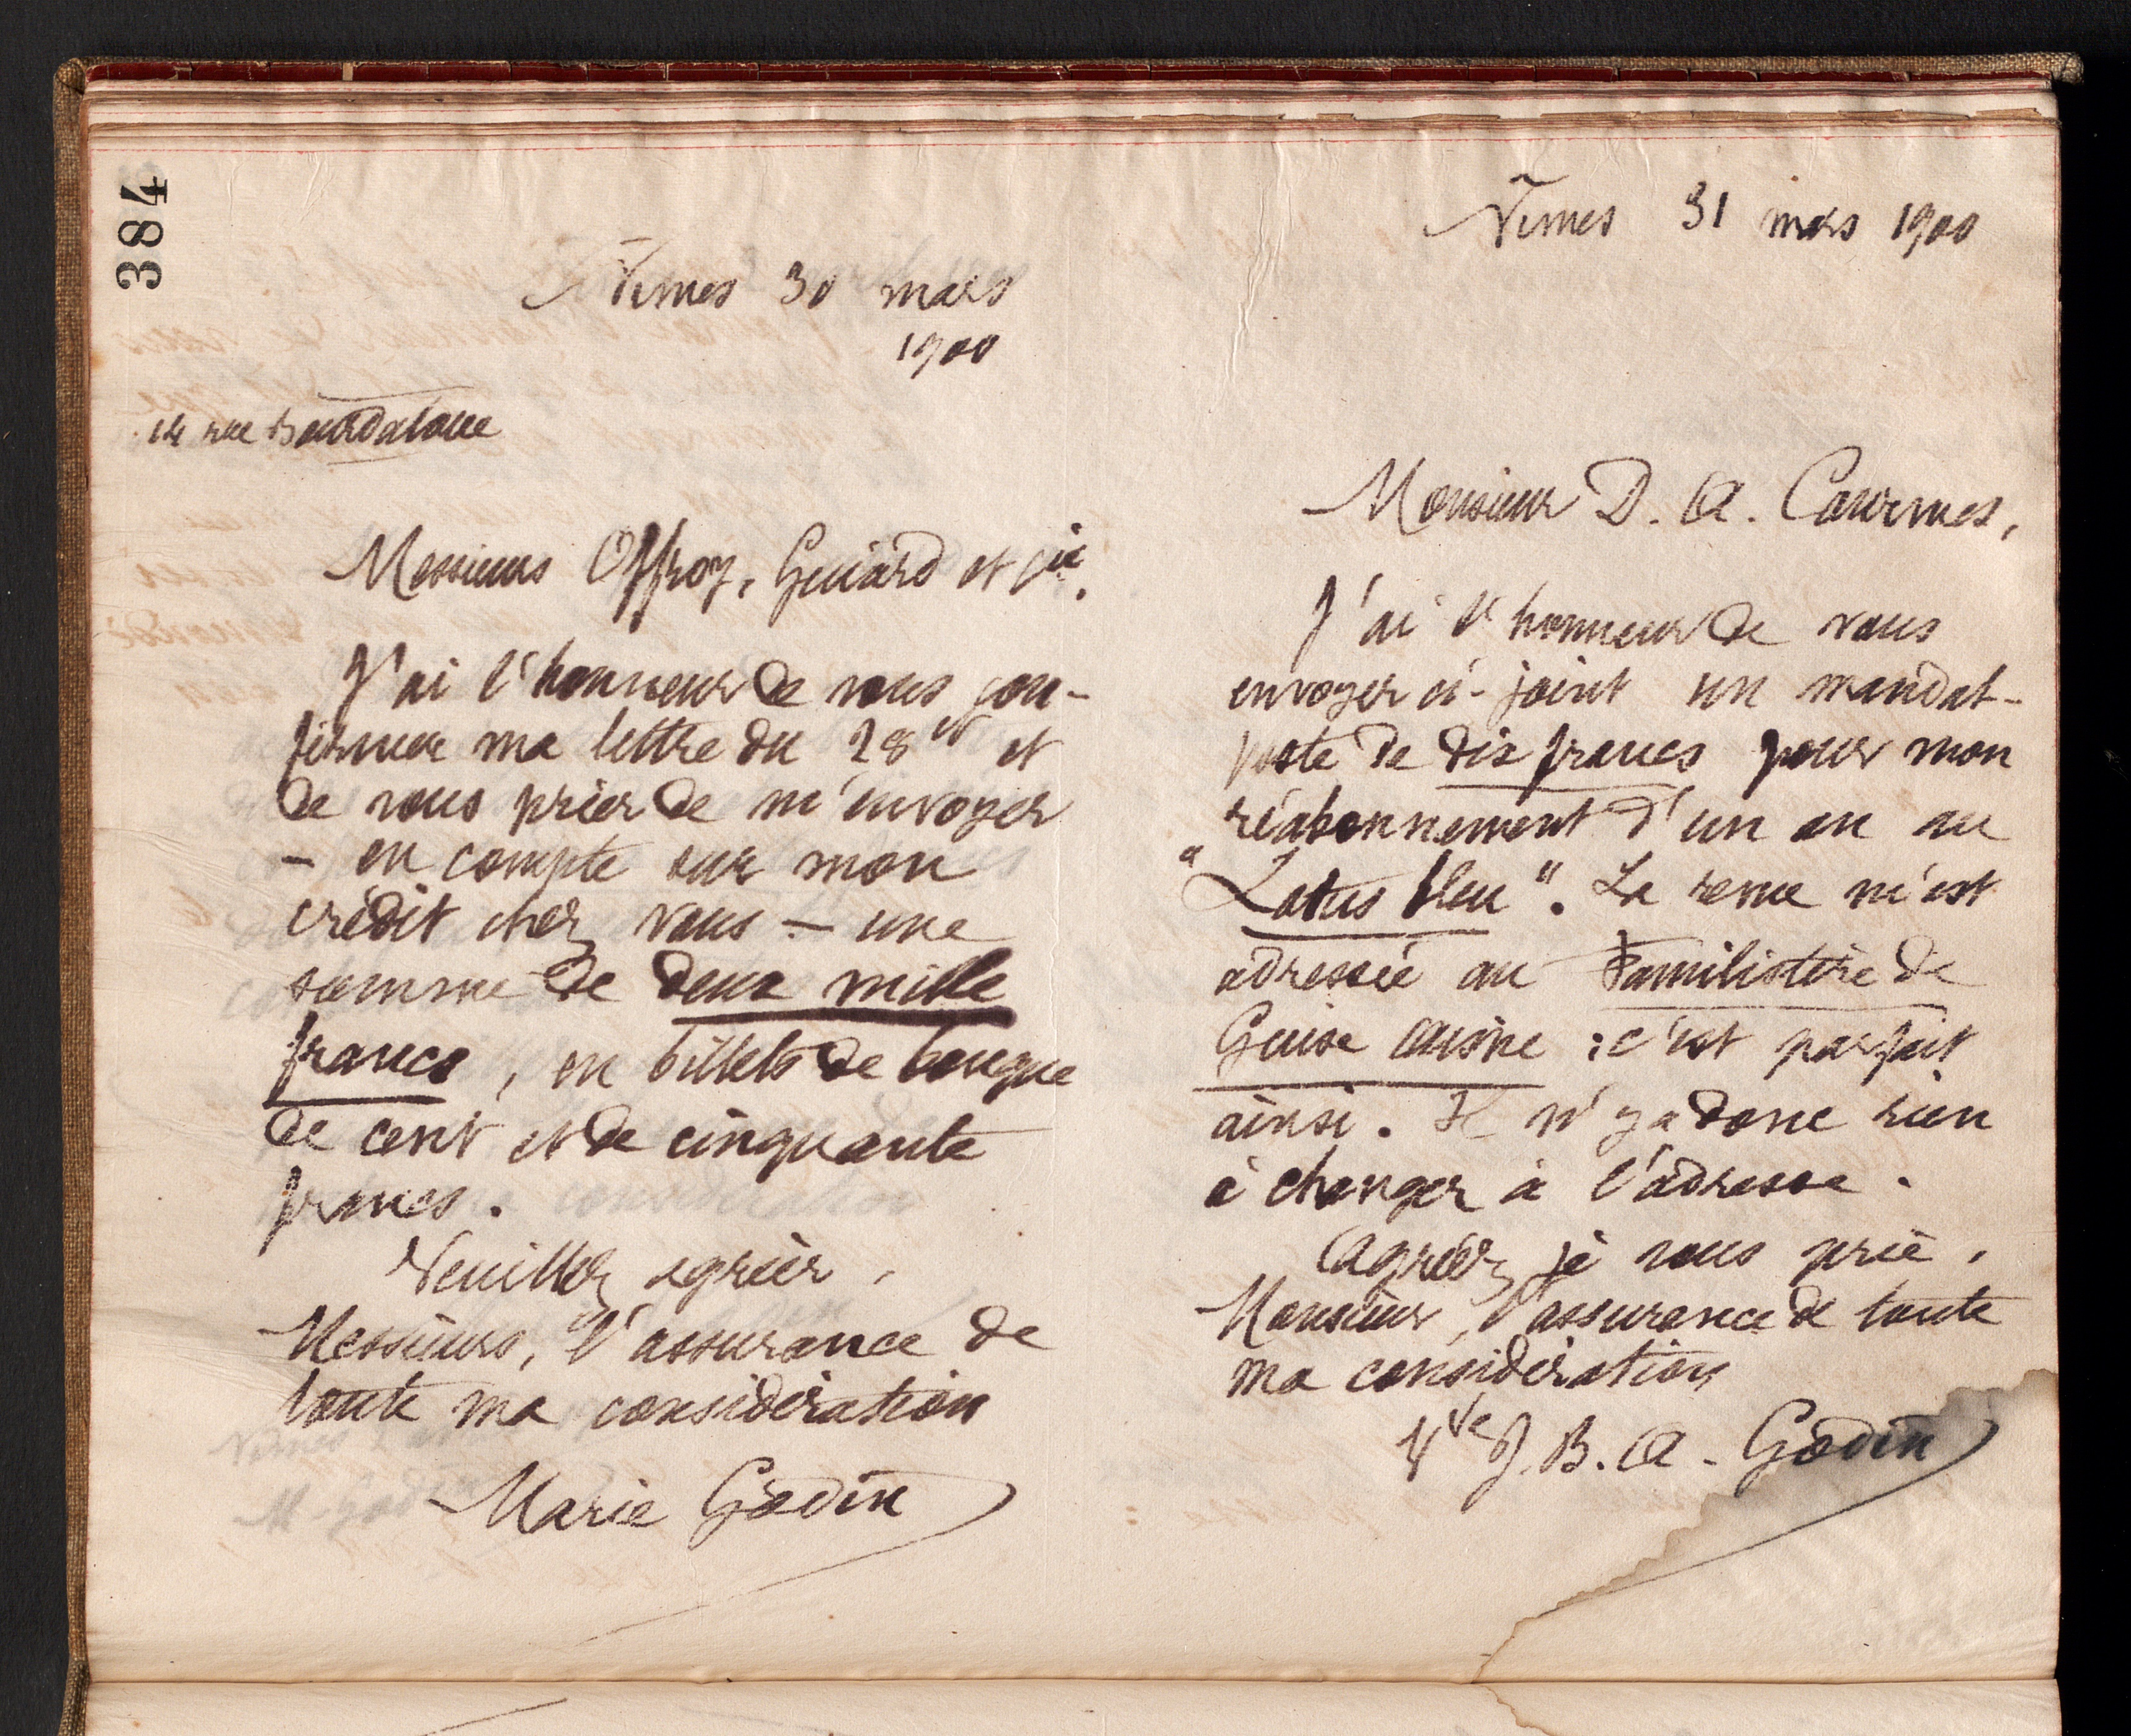 384
Nîmes 30 mars
1900
14 rue Bourdaloue
Messieurs Offroy, Guiard et Cie.
J'ai l'honneur de vous con-
firmer ma lettre du 28 ct et
de vous prier de m'envoyer
– en compte sur mon
crédit chez vous – une
somme de deux mille
francs, en billets de banque
de cent et de cinquante
francs.
Veuillez agréer,
Messieurs, l'assurance de
toute ma considération
Marie Godin
Nîmes 31 mars 1900
Monsieur D. A. Courmes,
J'ai l'honneur de vous
envoyer ci-joint un mandat-
poste de dix francs pour mon
réabonnement d'un an au
"Lotus bleu". La revue m'est
adressée au Familistère de
Guise Aisne : c'est parfait
ainsi. Il n'y a donc rien
à changer à l'adresse.
Agréez, je vous prie,
Monsieur, l'assurance de toute
ma considération
Vve J. B. A. Godin